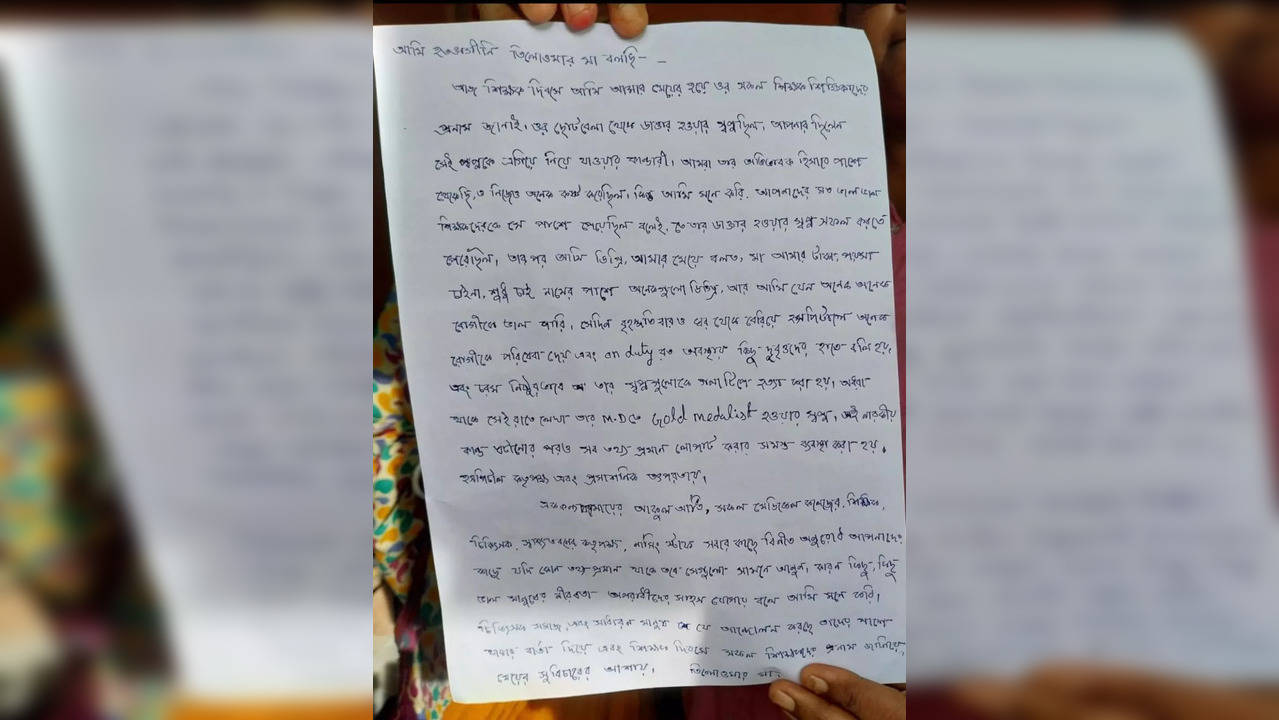 আমি হতভাগীনি তিলোত্তমার মা বলছি - -
আজ শিক্ষক দিবসে আমি আমার মেয়ের হয়ে ওর সকল শিক্ষক শিক্ষিকাদের
প্রনাম জানাই। ওর ছোটবেলা থেকে ডাক্তার হওয়ার স্বপ্ন ছিল। আপনারা ছিলেন
সেই স্বপ্নকে এগিয়ে নিয়ে যাওয়ার কান্ডারী। আমরা তার অভিভাবক হিসাবে পাশে
থেকেছি, ও নিজেও অনেক কষ্ট করেছিল। কিন্তু আমি মনে করি, আপনাদের মত ভাল ভাল
শিক্ষকদেরকে সে পাশে পেয়েছিল বলেই, তার ডাক্তার হওয়ার স্বপ্ন সফল করতে
পেরেছিল। তারপর আমি ডিগ্রি, আমার মেয়ে বলত, মা আমার টাকা-পয়সা
চাইনা, শুধু চাই নামের পাশে অনেকগুলো ডিগ্রি, আর আমি যেন অনেক অনেক
রোগীকে ভাল পারি। সেদিন বৃহস্পতিবারও ঘর থেকে বেরিয়ে হসপিটালে অনেক
রোগীকে পরিষেবা দেয় এবং on duty রত অবস্থায় কিছু দুবৃত্তদের হাতে বলি হয়,
এবং চরম নিষ্ঠুরভাবে তার স্বপ্নগুলোকে গলা টিপে হত্যা করা হয়। অধরা
থাকে সেই রাতে লেখা তার M.D তে Gold medalist হওয়ার স্বপ্ন। এই নারকীয়
কান্ড ঘটানোর পরও সব তথ্য প্রমান লোপাট করার সমস্ত ব্যবস্থা করা হয়,
হসপিটাল কতৃপক্ষ এবং প্রশাসনিক তৎপরতায়।
মায়ের আকুল আর্তি, সকল মেডিকেল কলেজের শিক্ষক,
চিকিৎসক, স্বাস্থ্যভবনের কতৃপক্ষ, নার্সিং স্টাফ সবার কাছে বিনীত অনুরোধ আপনাদের
কাছে যদি কোন তথ্যপ্রমান থাকে তবে সেগুলো সামনে আনুন, কারন কিছু, কিছু
ভাল মানুষের নীরবতা অপরাধীদের সাহস যোগায় বলে আমি মনে করি।
চিকিৎসক সমাজ, এবং সাধারন মানুষ যে আন্দোলন করছে তাদের পাশে
থাকার বার্তা দিয়ে এবং শিক্ষক দিবসে সকল শিক্ষকদের প্রনাম জানিয়ে,
মেয়ের সুবিচারের আশায়। তিলোত্তমার মা।